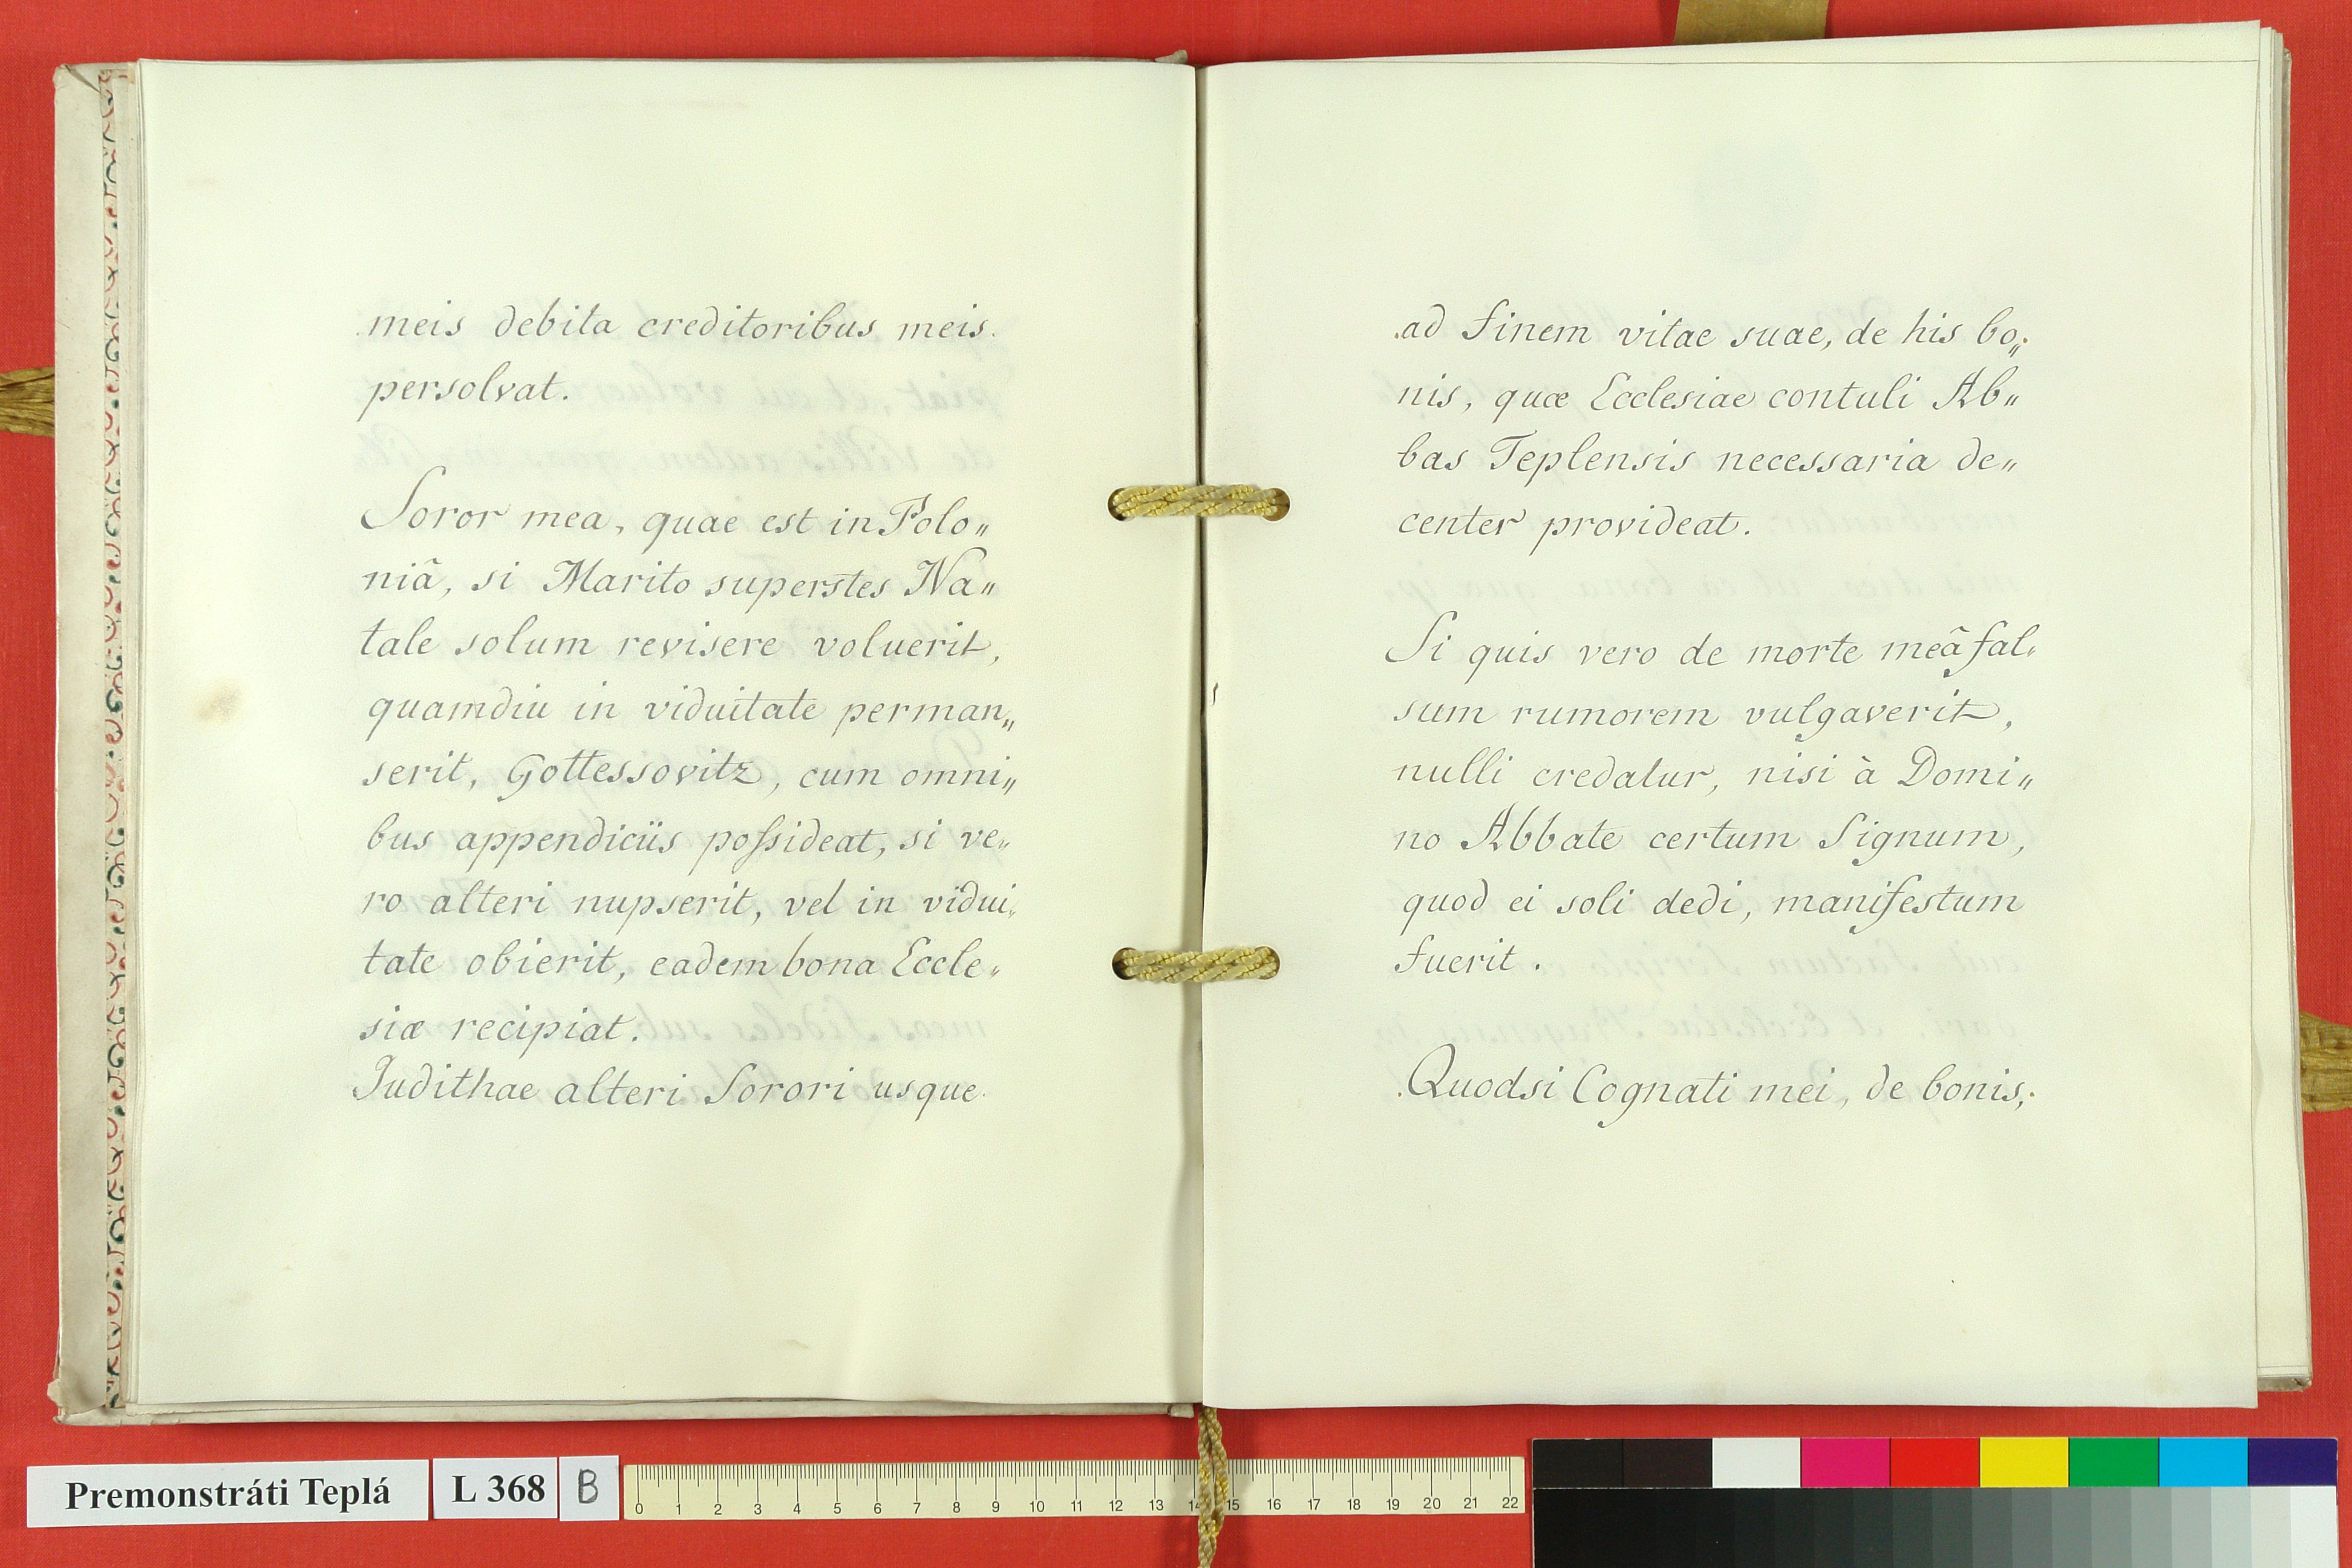 meis debita creditoribus meis.
persolvat.
Soror mea, quae est in Polo„
niâ, si Marito superstes Na„
tale solum revisere voluerit,
quamdiu in viduitate perman„
serit, Gottessovitz, cum omni„
bus appendiciis poſsideat, si ve„
ro alteri nupserit, vel in vidui„
tate obierit, eadem bona Eccle„
siæ recipiat.
Judithae alteri Sorori usque
ad finem vitae suae, de his bo„
nis, quæ Ecclesiae contuli Ab„
bas Teplensis necessaria de„
center provideat.
Si quis vero de morte meâ fal„
sum rumorem vulgaverit,
nulli credatur, nisi à Domi„
no Abbate certum Signum,
quod ei soli dedi, manifestum
fuerit.
Quodsi Cognati mei, de bonis,
Premonstráti Teplá L 368 B
0 1 2 3 4 5 6 7 8 9 10 11 12 13 14 15 16 17 18 19 20 21 22